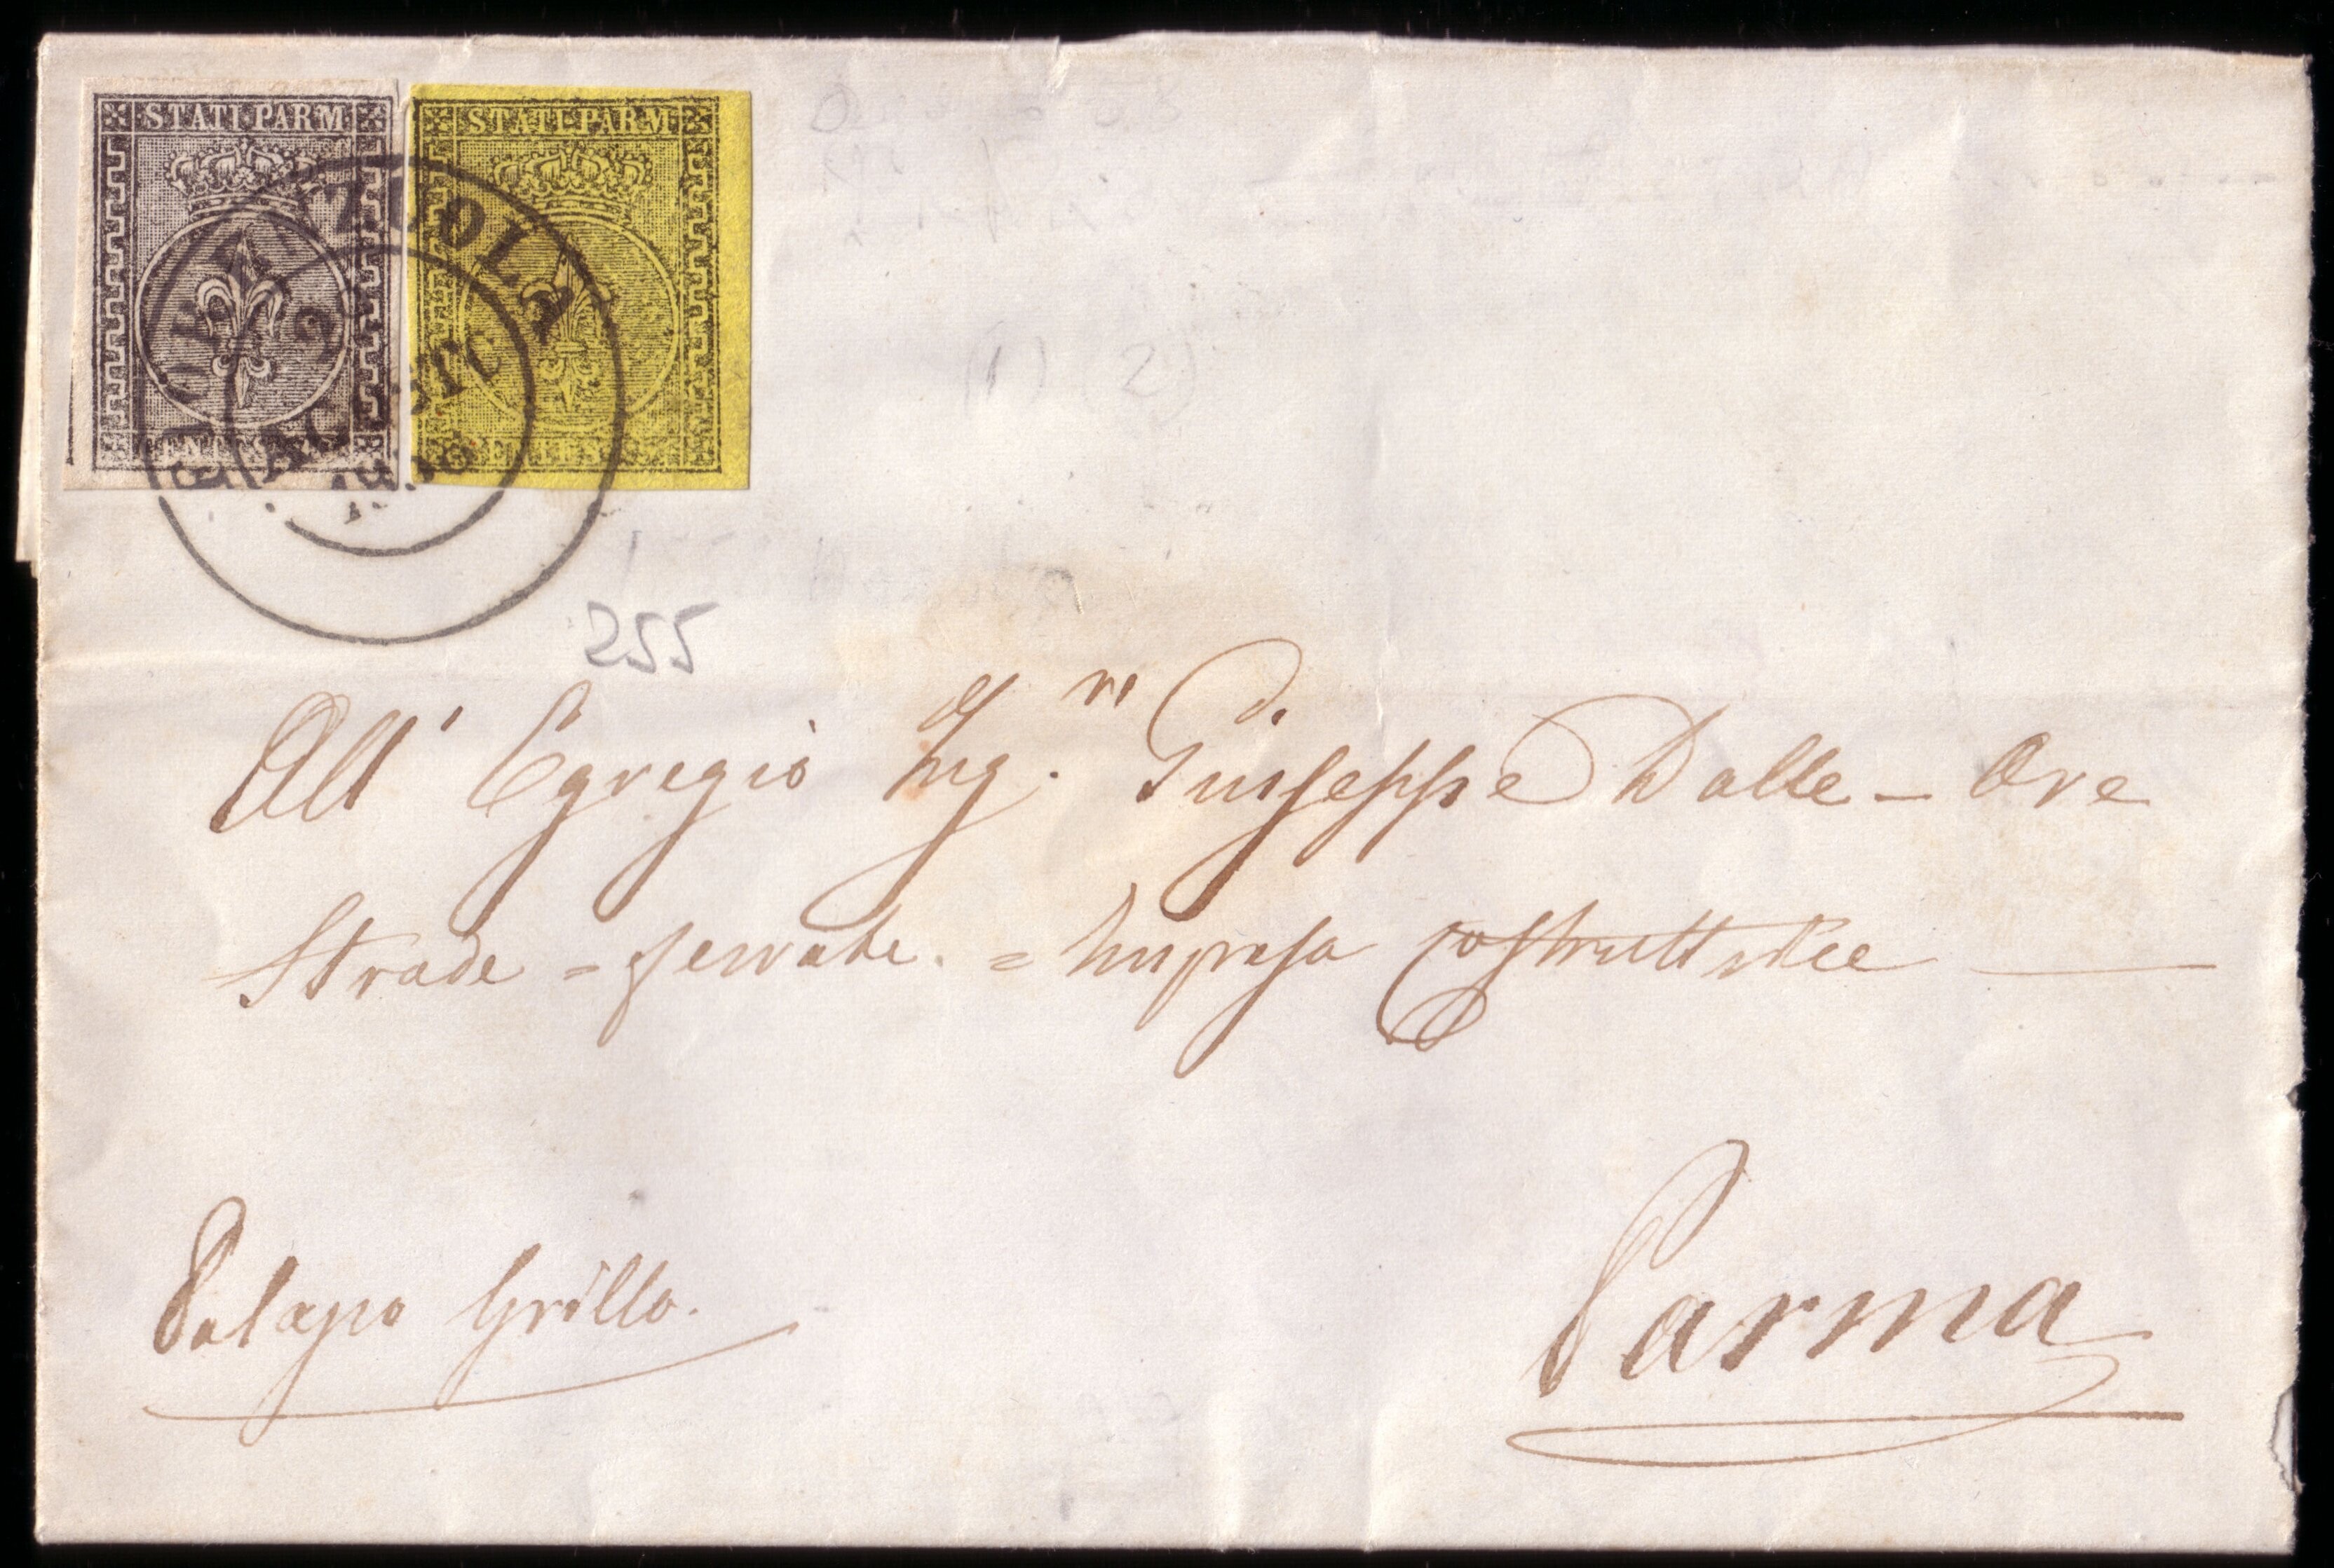 STATI PARM
STATI PARM
AGOSTO
255
(1) (2)
All' Egregio Ing.r Sig.r D. Giuseppe Dalle - Ore
Strade = ferrate. = Impresa Costruttrice
Palazzo Grillo.
Parma